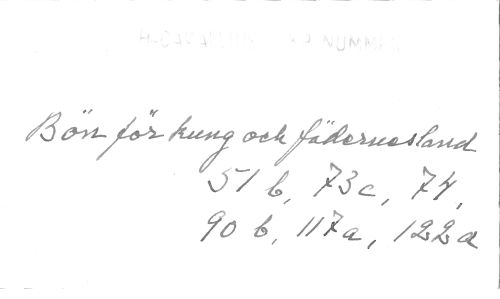 Bön för kung och fädernesland
51 b, 73c, 74,
90 b, 117a, 122a